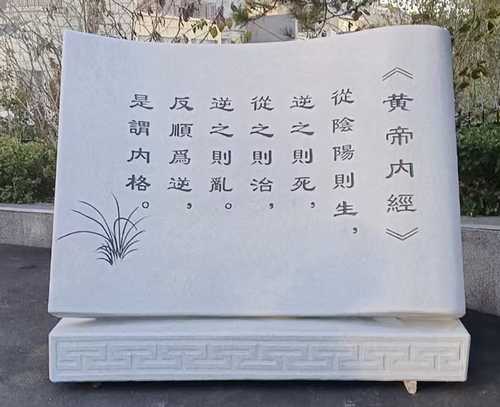 《黄帝内經》
從陰陽則生，
逆之則死，
從之則治，
逆之則亂。
反順爲逆，
是謂内格。